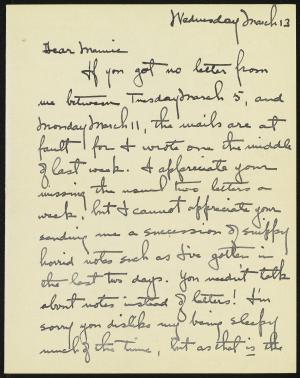 Wednesday March 13
Dear Mamie
If you got no letter from
me between Tuesday March 5, and
Monday March 11, the mails are at
fault for I wrote one the middle
of last week. I appreciate your
missing the usual two letters a
week, but I cannot appreciate your
sending me a succession of snippy
horrid notes such as I've gotten in
the last two days. You needn't talk
about notes instead of letters! I'm
sorry you dislike my being sleepy
much of the time, but as that is the